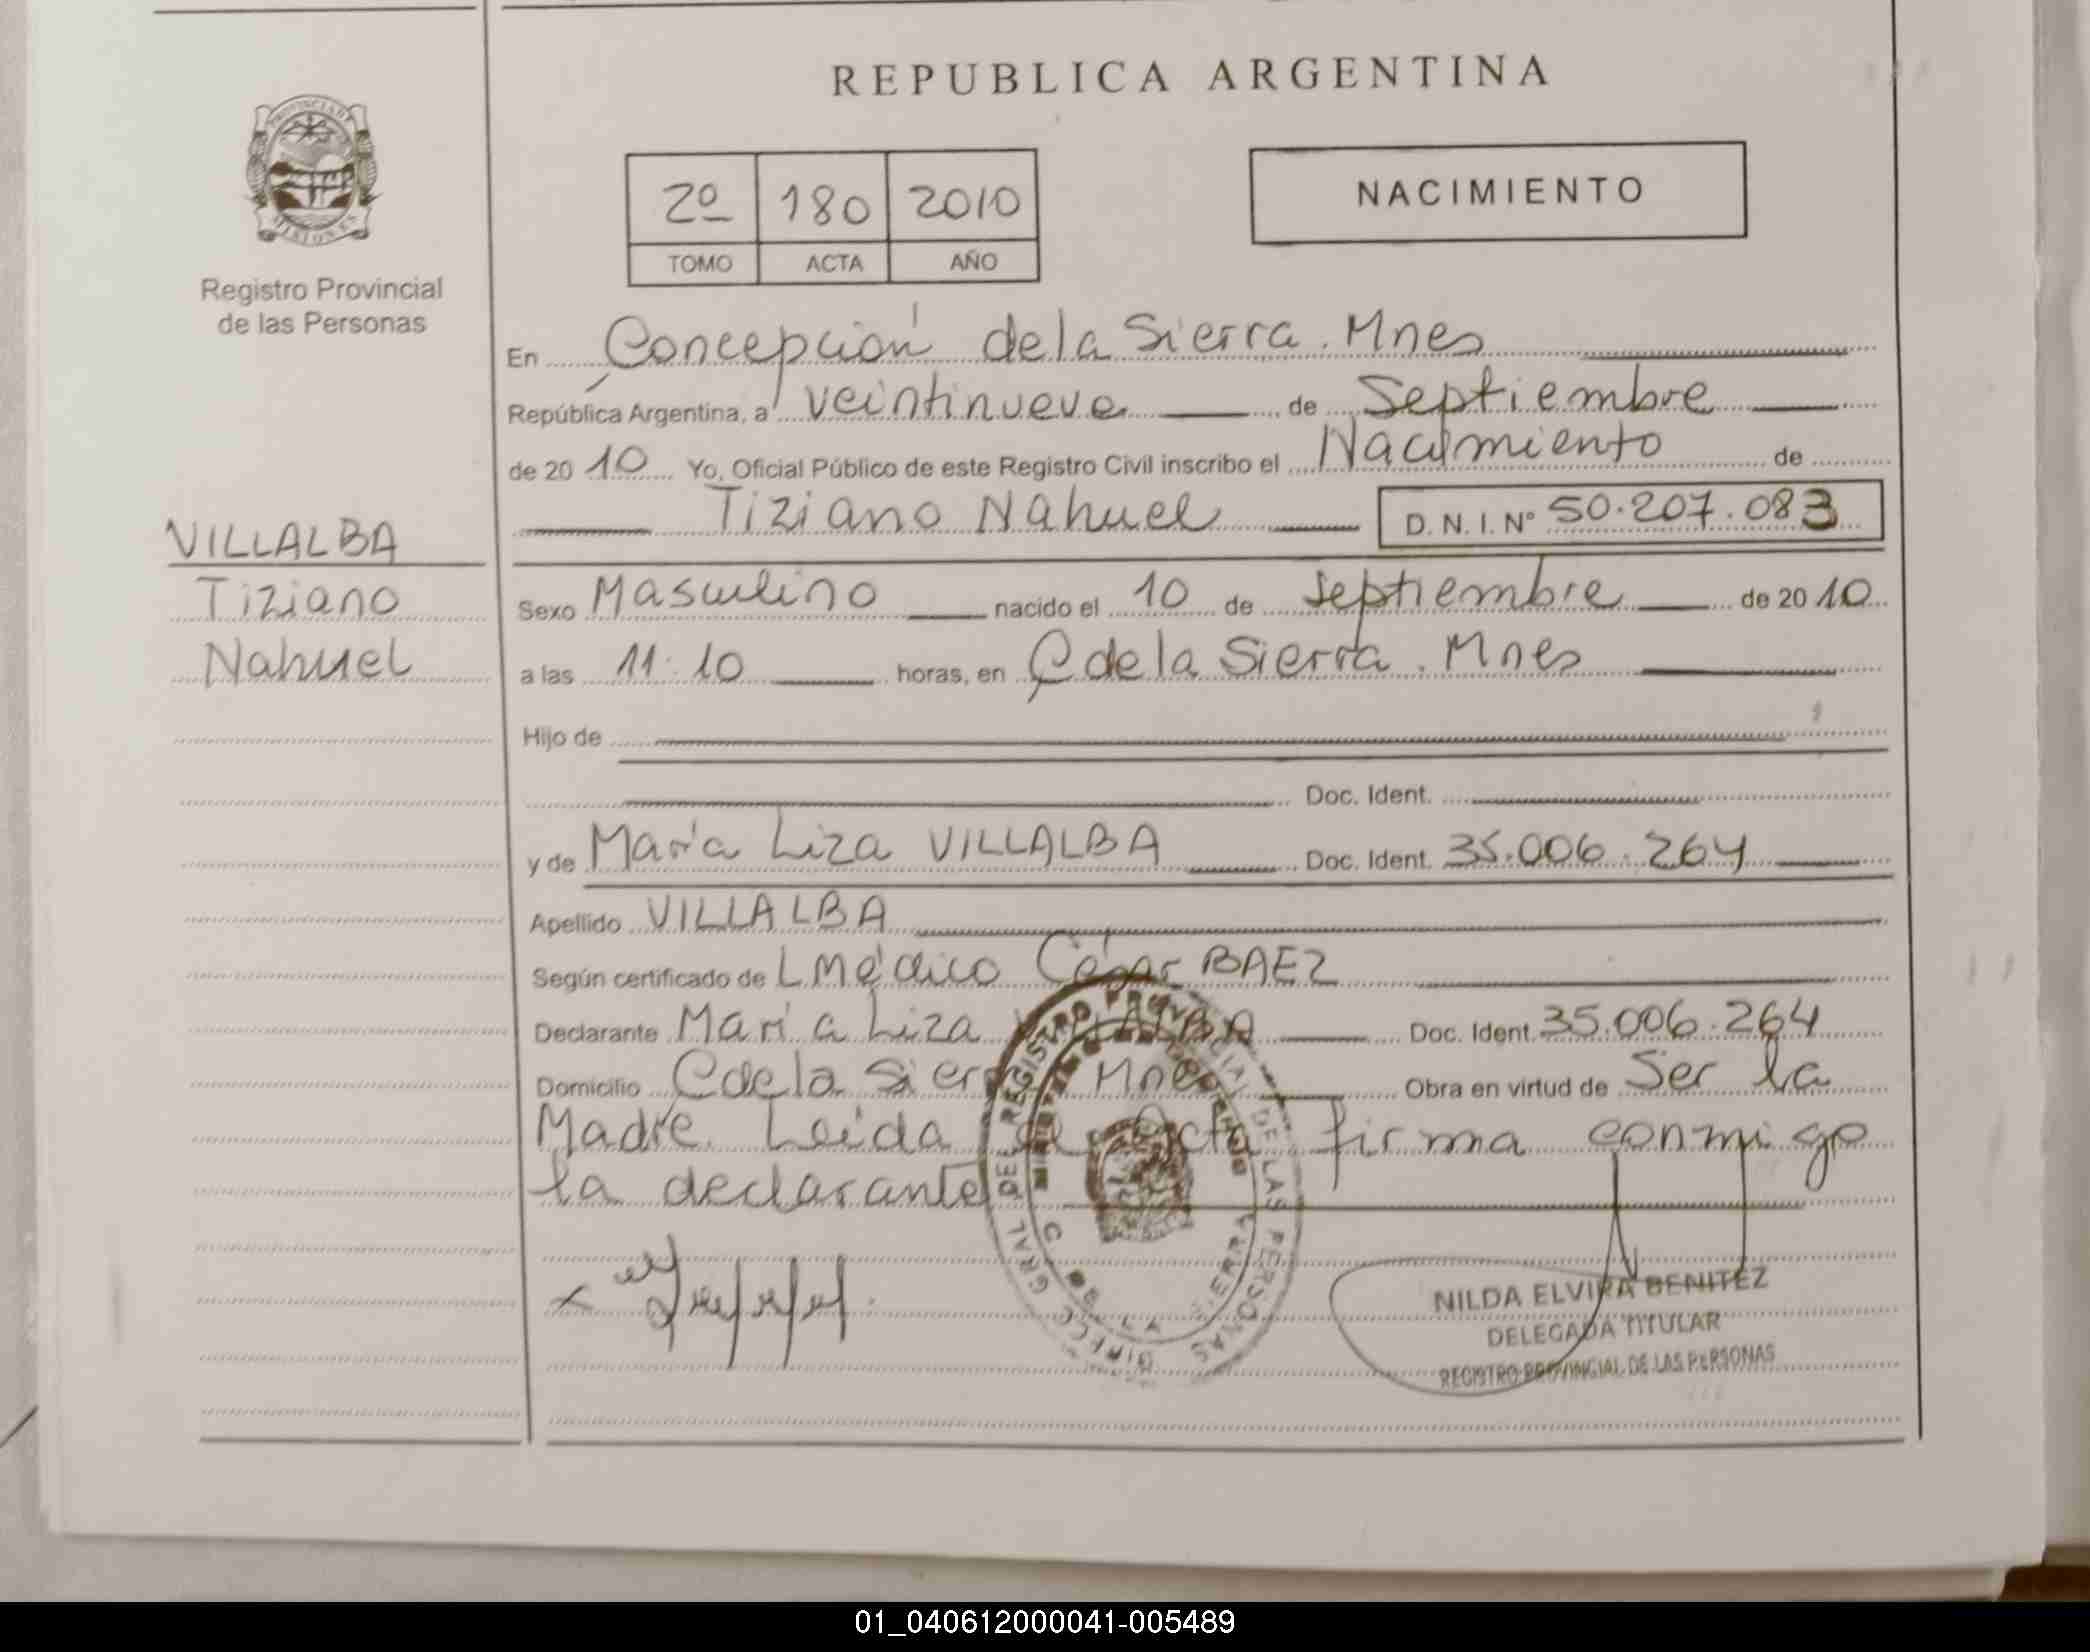 REPUBLICA ARGENTINA
PROVINCIA DE
MISIONES
Registro Provincial
de las Personas
2º 180 2010
TOMO ACTA AÑO
NACIMIENTO
En Concepción de la Sierra. Mnes
República Argentina, a veintinueve de Septiembre
de 2010 Yo, Oficial Público de este Registro Civil inscribo el Nacimiento de
Tiziano Nahuel D.N.I.Nº 50.207.083
VILLALBA
Tiziano
Nahuel
Sexo Masculino nacido el 10 de Septiembre de 2010
a las 11:10 horas, en C de la Sierra. Mnes
Hijo de
Doc. Ident.
y de María Liza VILLALBA Doc. Ident. 35.006.264
Apellido VILLALBA
Según certificado de L Médico César BAEZ
Declarante María Liza VILLALBA Doc. Ident. 35.006.264
Domicilio C de la Sierra Mnes Obra en virtud de Ser la
Madre. Leida el Acta firma conmigo
la declarante
DIRECC GRAL DEL REGISTRO PROVINCIAL DE LAS PERSONAS
C DE LA SIERRA
NILDA ELVIRA BENITEZ
DELEGADA TITULAR
REGISTRO PROVINCIAL DE LAS PERSONAS
01_040612000041-005489